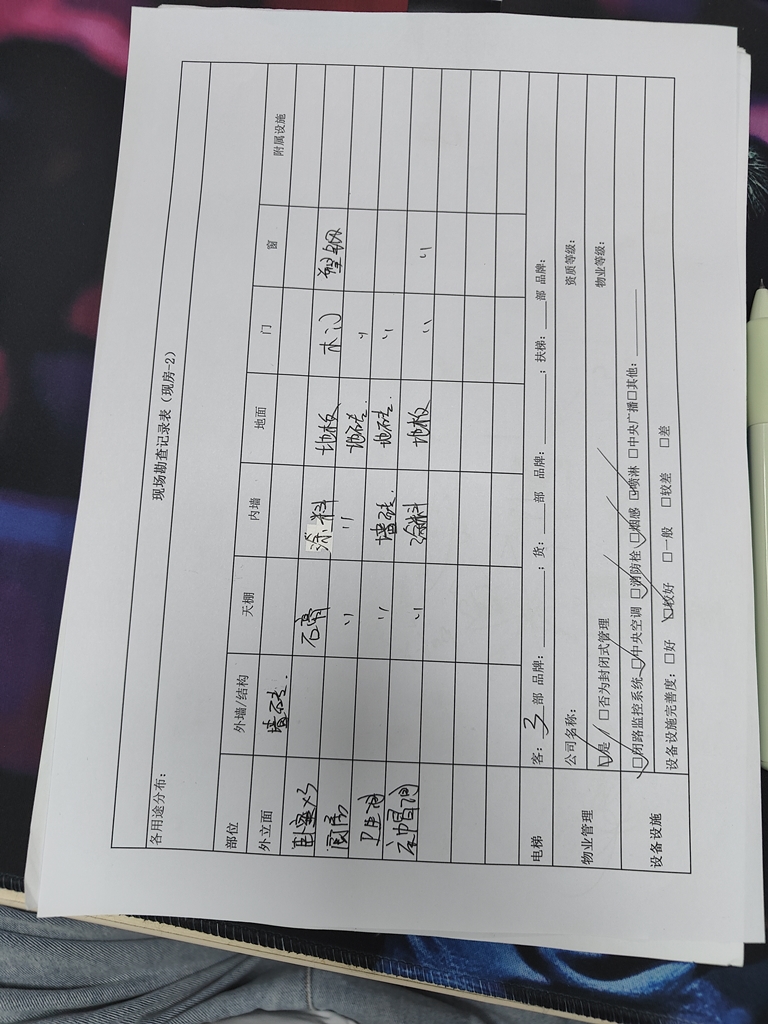 现场勘查记录表（现房-2）
各用途分布：
部位 外墙/结构 天棚 内墙 地面 门 窗 附属设施
外立面 墙砖.
卧室×3 石膏 涂料 地板 木门 塑钢
厨房 〃 〃 地砖. 〃
卫生间 〃 墙砖. 地砖. 〃
衣帽间 〃 涂料 地板 〃 〃
电梯 客：3部 品牌：______；货：___部 品牌：______；扶梯：___部 品牌：
物业管理 公司名称： 资质等级：
☑是/□否为封闭式管理 物业等级：
设备设施 ☑闭路监控系统 ☑中央空调 ☑消防栓 ☑烟感 ☑喷淋 □中央广播 □其他：______
设备设施完善度：□好 ☑较好 □一般 □较差 □差